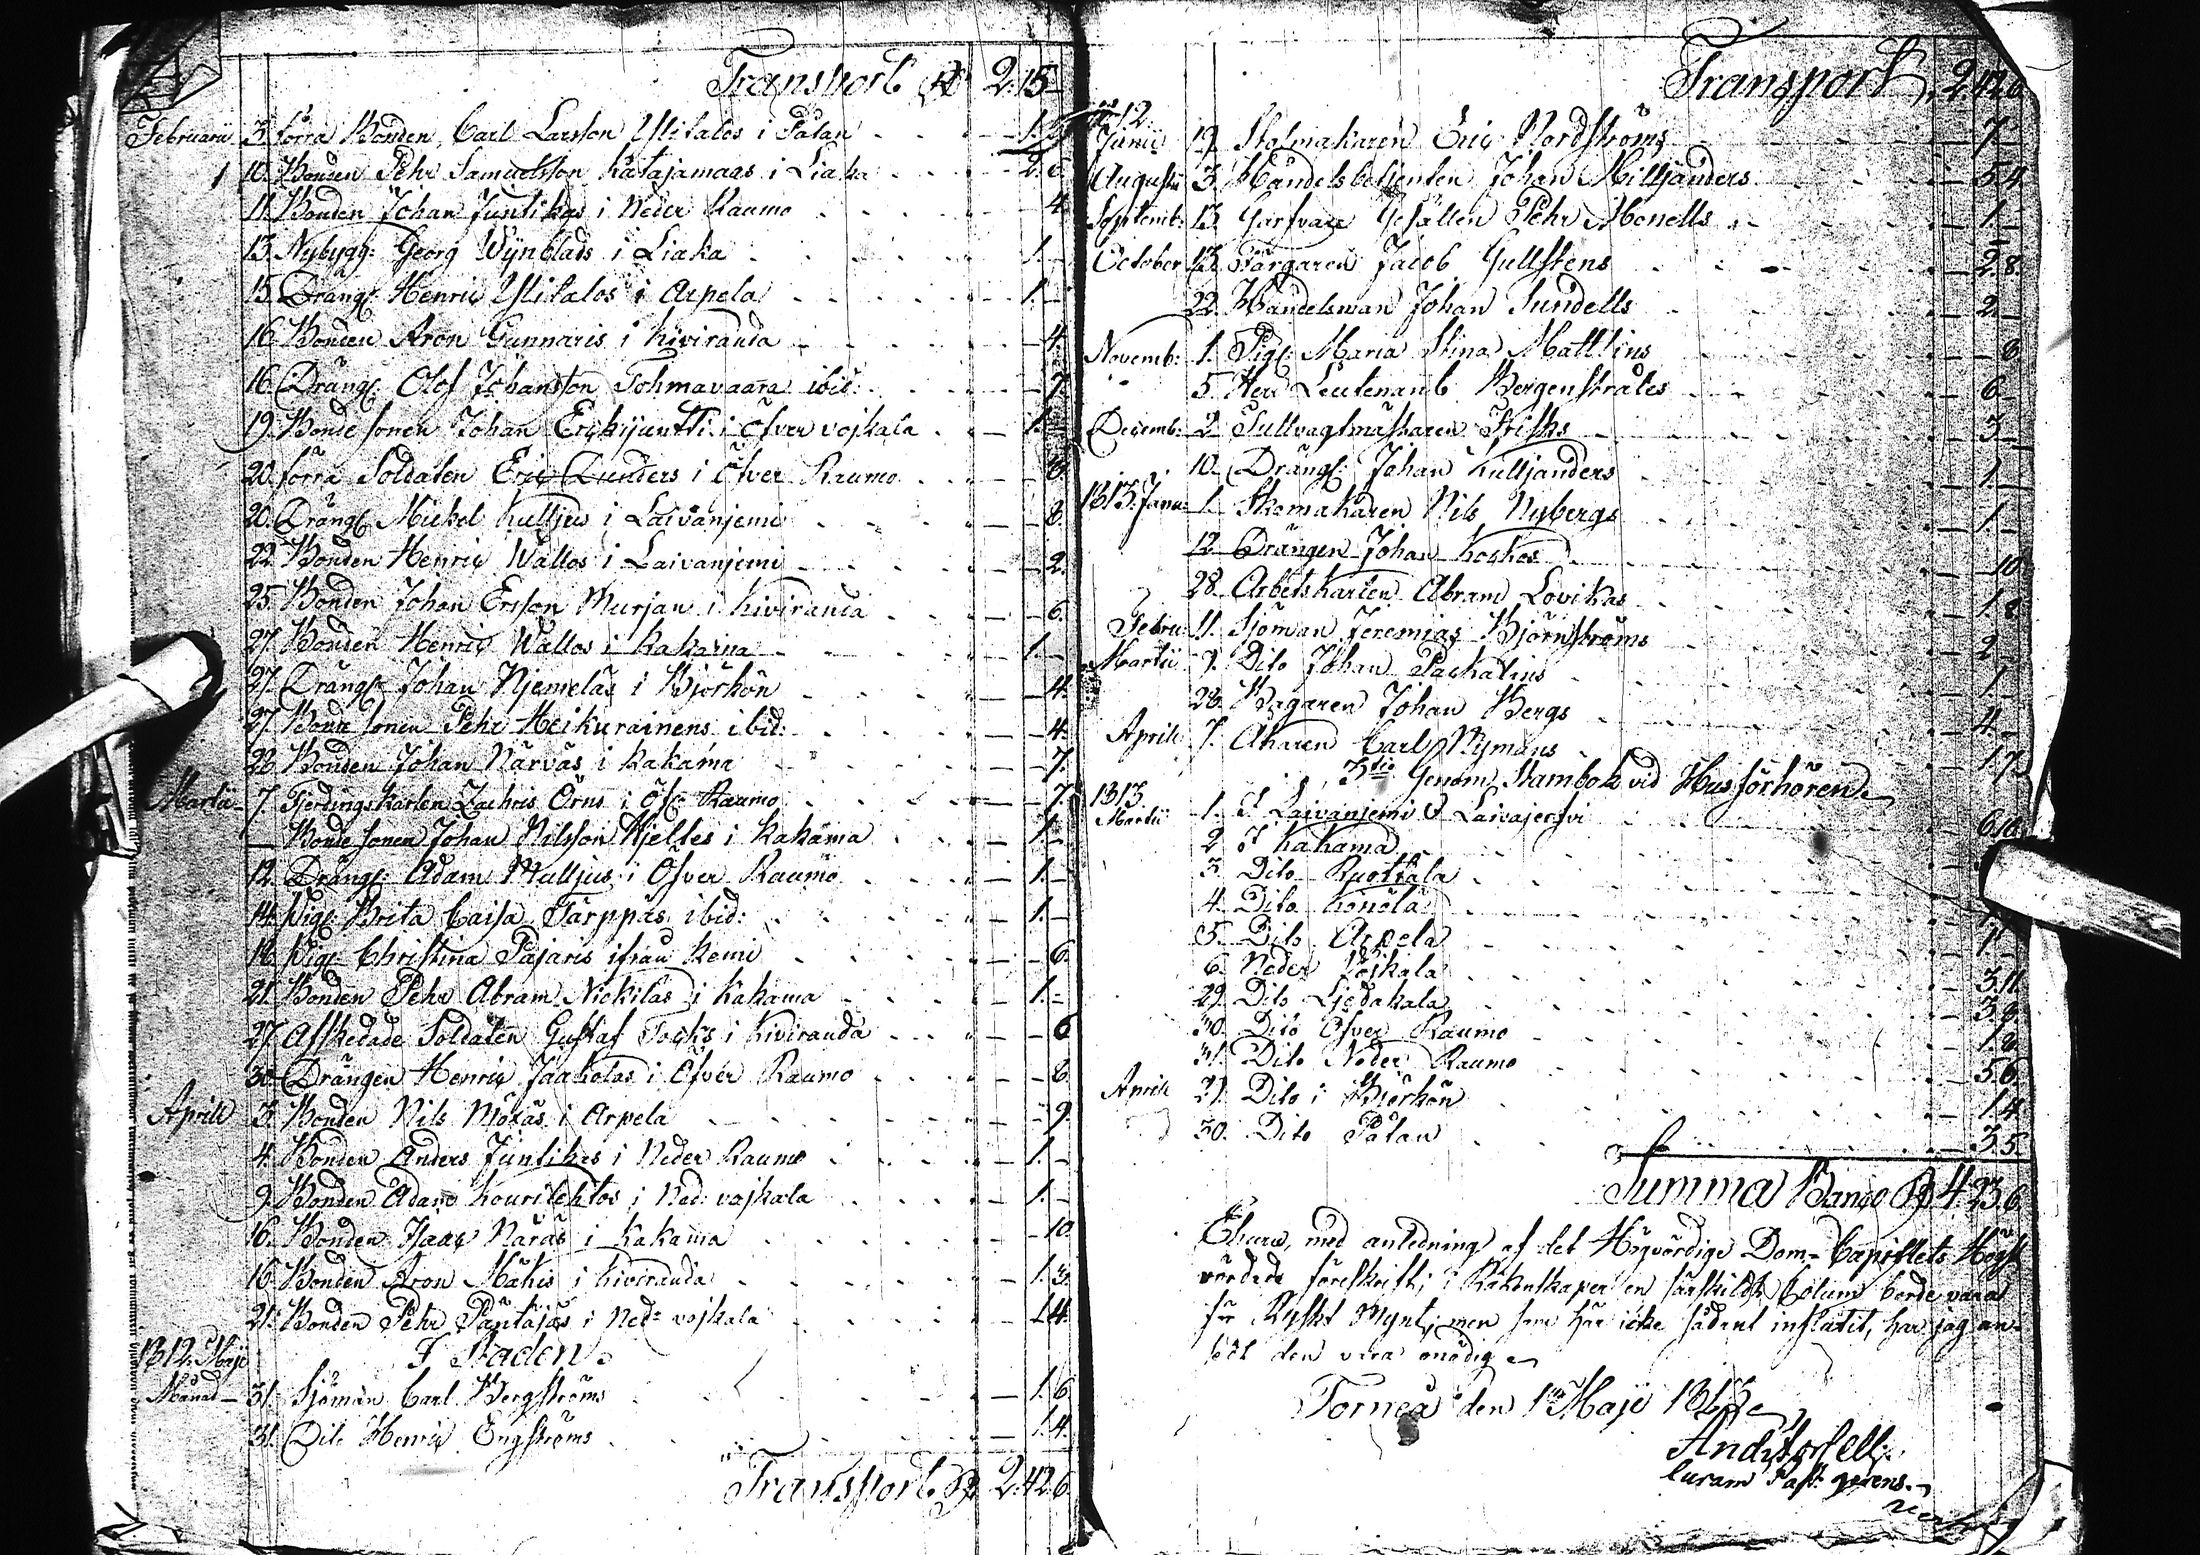 Transport Rd 2.15.–
Februarii 3. förra Bonden, Carl Larsson Ylitalos i Pålan – 1.
10. Bonden Pehr Samuelsson Katajamaas i Liaka – 2.6.
11. Bonden Johan Juntikas i Neder Raumo – 4.
13. Nybygg: Georg Wijnblads i Liaka – 1.–
15. Drängs: Henric Ylitalos i Arpela – 1.–
16. Bonden Aron Gunnaris i Kiviranda – 4.
16. Drängs: Olof Johansson Tohmavaara ibid: – 7.
19. Bonde sonen Johan Erckijuntti i Öfver vojkala – 1.–
20. förra Soldaten Eric Lunders i Öfver Raumo – 8.
20. Drängs: Mickel Kulljus i Laivanjemi – 8.
22. Bonden Henric Wallos i Laivanjemi – 2.
25. Bonden Johan Ersson Murjan i Kiviranda – 6.
27. Bonden Henric Wallos i Kakama – 1.–
27. Drängs: Johan Njemeläs i Björkön – 4.
27. Bonde sonen Pehr Heikurainens ibid: – 4.
28. Bonden Johan Närväs i Kakama – 7.
Martii – 7. Fjerdingskarlen Zachris Örns i Öfr Raumo – 7.
– Bonde sonen Johan Nilsson Kjelles i Kakama – 1.–
12. Drängs: Adam Mulljus i Öfver Raumo – 1.–
14. Pigs: Brita Caisa Tärppäs ibid: – 1.–
18. Pigs: Christina Pajaris ifrån Kemi – 6.
21. Bonden Pehr Abram Nickilas i Kakama – 1.–
27. Afskedade Soldaten Gustaf Tocks i Kiviranda – 6
30. Drängen Henric Jaakolas i Öfver Raumo – 8.
Aprill 3. Bonden Nils Njöräs i Arpela – 9.
4. Bonden Anders Juntikas i Neder Raumo – 1.–
9. Bonden Adam Kourilehtos i Ned: vojkala – 1.–
16. Bonden Isaac Naräs i Kakama – 10.
16. Bonden Aron Mäkis i Kiviranda – 1.3.
21. Bonden Pehr Pantajäs i Ned: vojkala – 1.4.
1812. Maji I Staden.
Månad – 31. Sjöman Carl Bergströms – 1.6
31. Dito Henric Engströms – 1.4.
Transport Rd 2.42.6
Transport, 2.42.6
1812.
Junii 19. Stolmakaren Eric Nordströms – 7.–
Augusti 3. Handelsbetjenten Johan Milljanders – 5.4.
Septemb: 13. Garfvare Gesällen Pehr Monells – 1.–
October 13. Färgaren Jacob Gullstens – 2.8.
22. Handelsman Johan Sundells – 2.–
Novemb: 1. Pigs: Maria Stina Mattlins – 8.
5. Herr Leutenant Bergenstråles – 6.–
Decemb: 2. Tullvagtmästaren Frisks – 3.–
10. Drängs: Johan Kulljanders – 1.–
1813. Janu: 1. Skomakaren Nils Nybergs – 1.–
12. Drängen Johan Koskos – 10.
28. Arbetskarlen Abram Lovikas – 1.8.
Febru: 11. Sjöman Jeremias Björnströms – 2.
Martii 7. Dito Johan Packalins – 1.–
28. Bagaren Johan Bergs – 4.–
Aprill 7. Åkaren Carl Nymans – 1.7.
3tio Genom Stambok vid Husförhören
1813
Martii 1. I Laivanjemi & Laivajerfvi – 6.10.
2. I Kakama
3. Dito Ruottala
4. Dito Könölä
5. Dito Arpela – 1.–
6. Neder Vojkala – 3.11.
29. Dito Ljedakala – 3.8.
30. Dito Öfver Raumo – 1.8.
31. Dito Neder Raumo – 5.6.
Aprill 27. Dito i Björkön – 1.4.
30. Dito Pålan – 3.5.
Summa Banco Rd 4.23.6.
med anledning af det Högvördige Dom-Capitlets Högst
vördade föreskrift, i Räkenskapen en särskildt Colum borde vara
för Ryskt Mynt, men som här icke sådant influtit, har jag an-
sedt den vara onödig
Torneå den 1sta Maji 1813.
Curam Past: gerens.